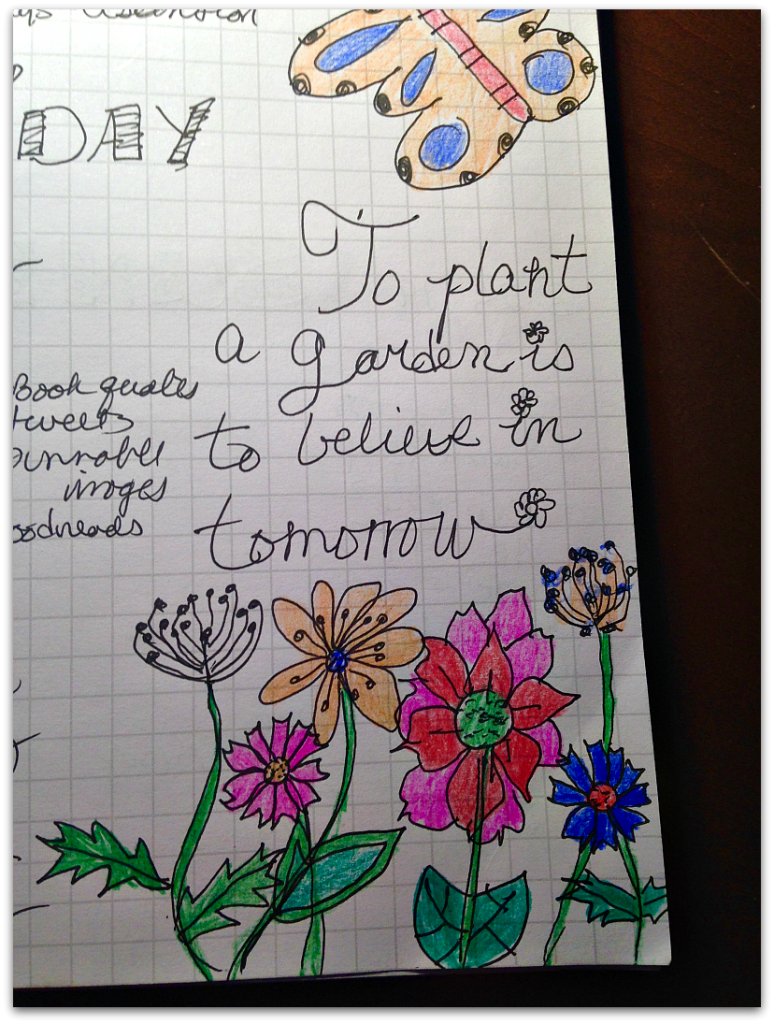 DAY
To plant
a garden is
to believe in
tomorrow
Book quotes
tweets
images
oodreads